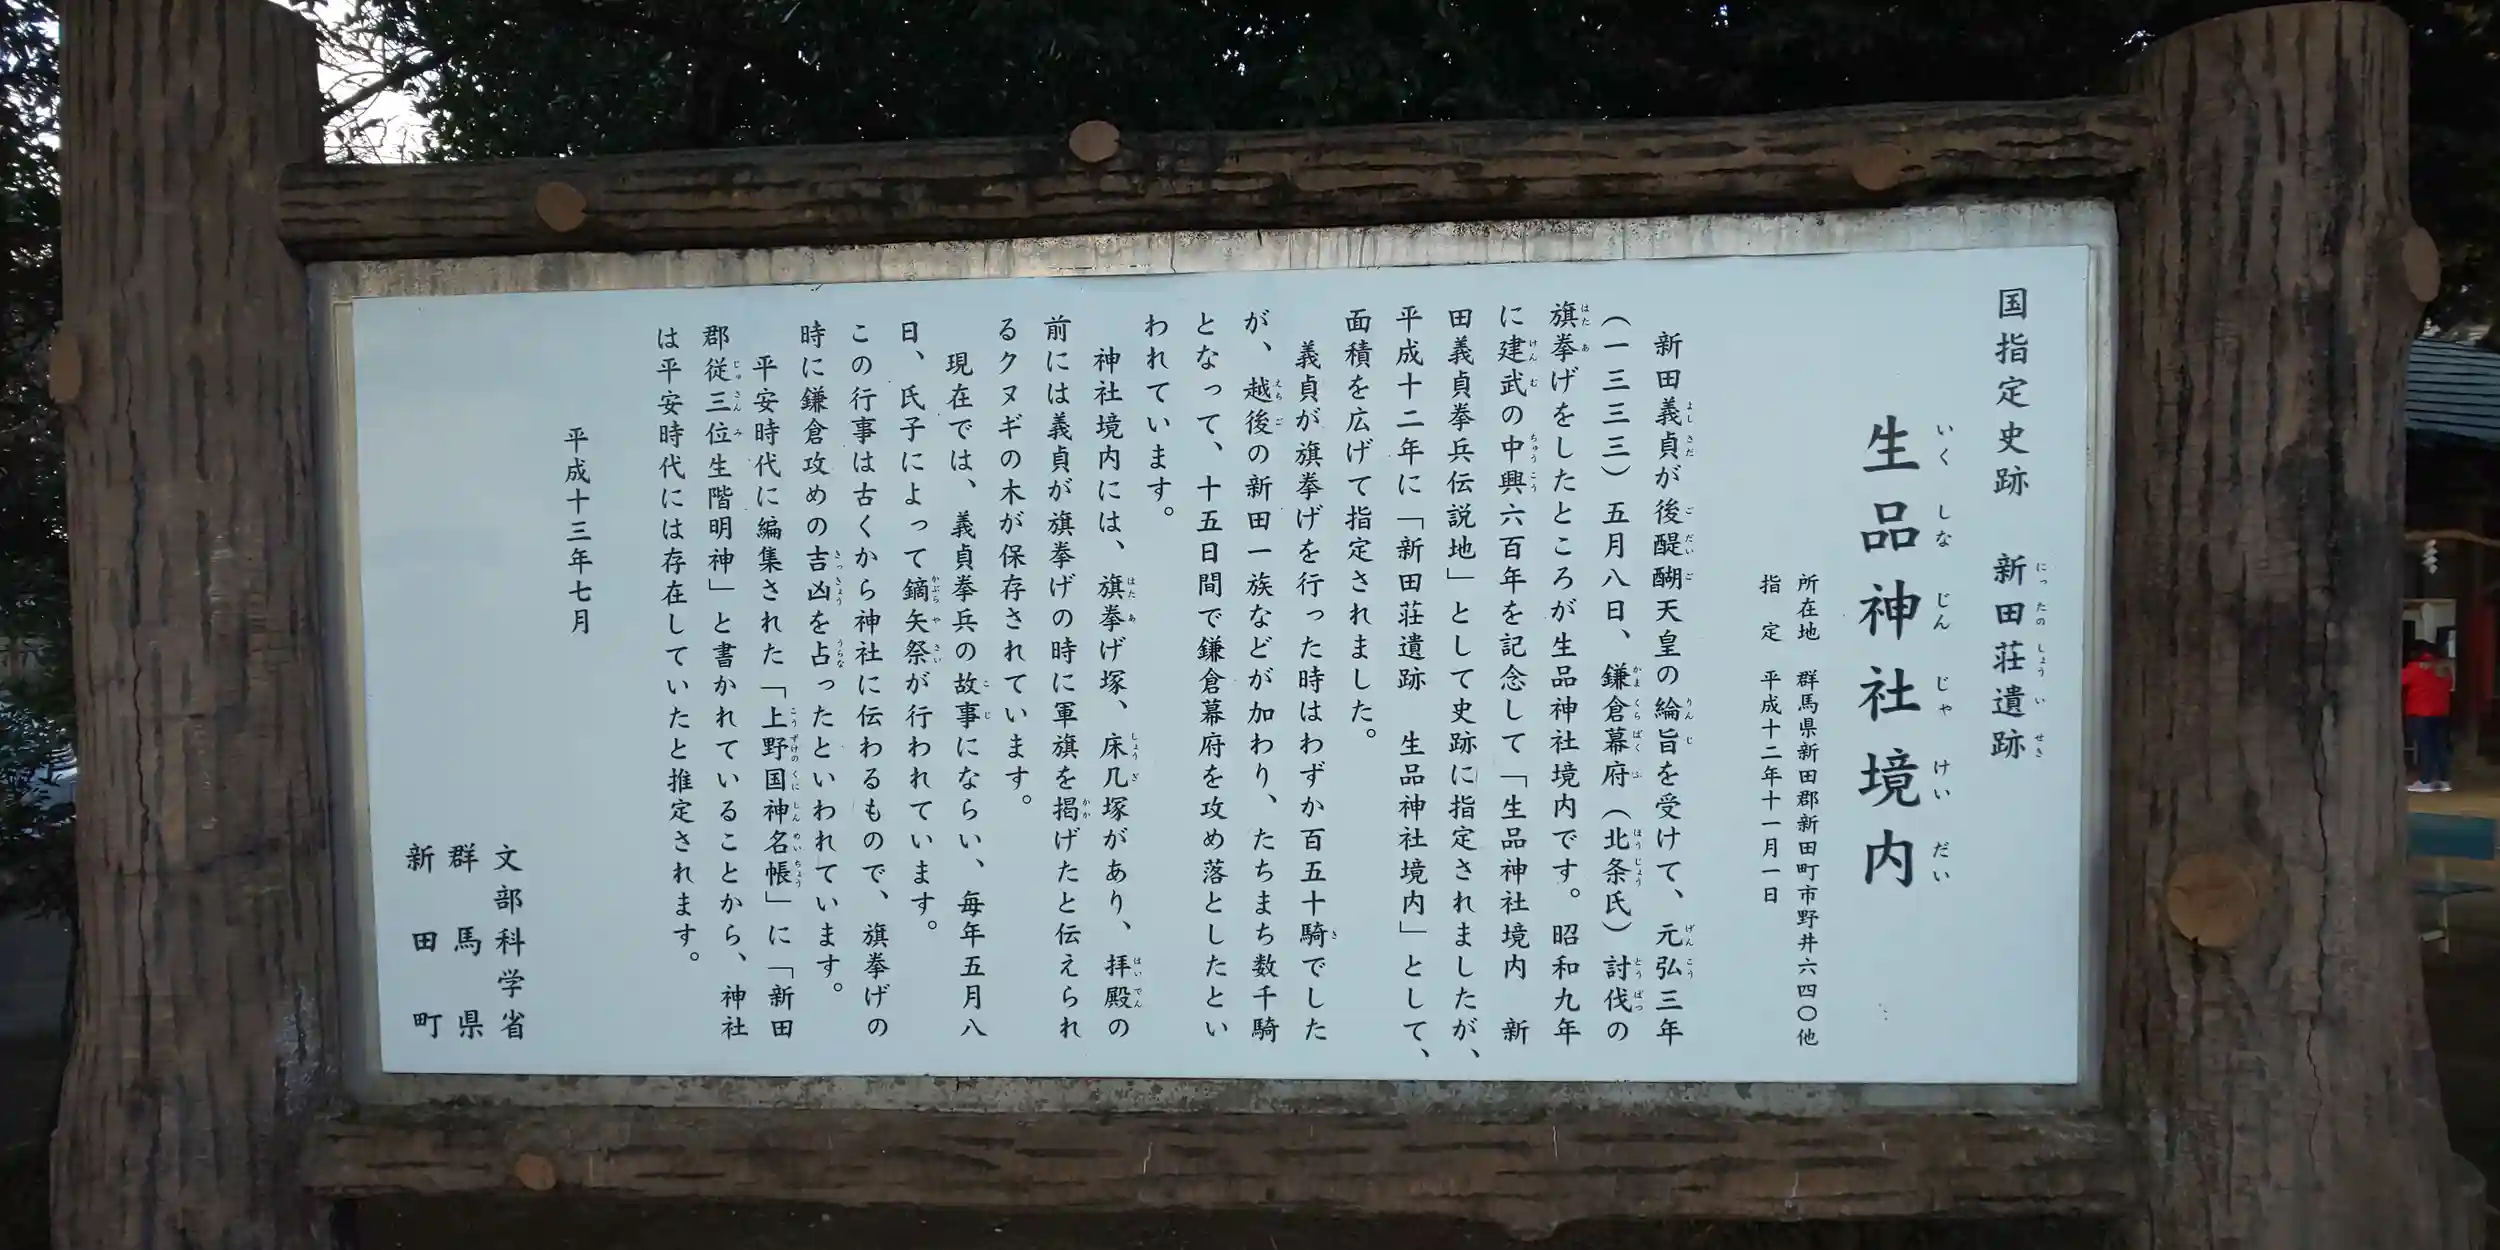 国指定史跡 新田荘遺跡
にっ たの しょう い せき
生品神社境内
いく しな じん じゃ けい だい
所在地 群馬県新田郡新田町市野井六四〇他
指 定 平成十二年十一月一日
新田義貞が後醍醐天皇の綸旨を受けて、元弘三年
(一三三三)五月八日、鎌倉幕府(北条氏)討伐の
旗挙げをしたところが生品神社境内です。昭和九年
に建武の中興六百年を記念して「生品神社境内 新
田義貞挙兵伝説地」として史跡に指定されましたが、
平成十二年に「新田荘遺跡 生品神社境内」として、
面積を広げて指定されました。
義貞が旗挙げを行った時はわずか百五十騎でした
が、越後の新田一族などが加わり、たちまち数千騎
となって、十五日間で鎌倉幕府を攻め落としたとい
われています。
神社境内には、旗挙げ塚、床几塚があり、拝殿の
前には義貞が旗挙げの時に軍旗を掲げたと伝えられ
るクヌギの木が保存されています。
現在では、義貞挙兵の故事にならい、毎年五月八
日、氏子によって鏑矢祭が行われています。
この行事は古くから神社に伝わるもので、旗挙げの
時に鎌倉攻めの吉凶を占ったといわれています。
平安時代に編集された「上野国神名帳」に「新田
郡従三位生階明神」と書かれていることから、神社
は平安時代には存在していたと推定されます。
平成十三年七月
文部科学省
群馬県
新田町